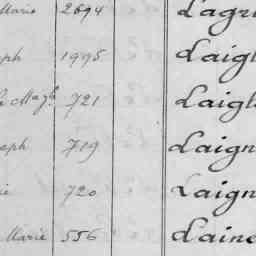 Marie 2694 Lagr
ph 1995 Laigl
Magh 721 Laigl
seph 719 Laign
ie 720 Laign
Marie 556 Laine